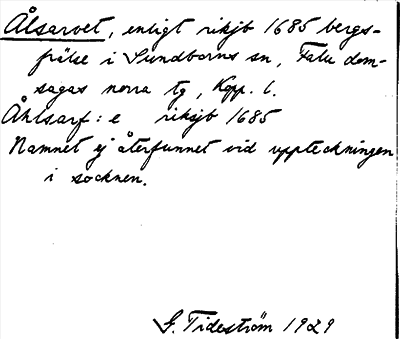 Ålsarvet, enligt riksjb 1685 bergs-
frälse i Sundborns sn, Falu dom-
sagas norra tg, Kopp. l.
Åhlsarf: e riksjb 1685
Namnet ej återfunnet vid uppteckningen
i socknen.
G. Tideström 1929